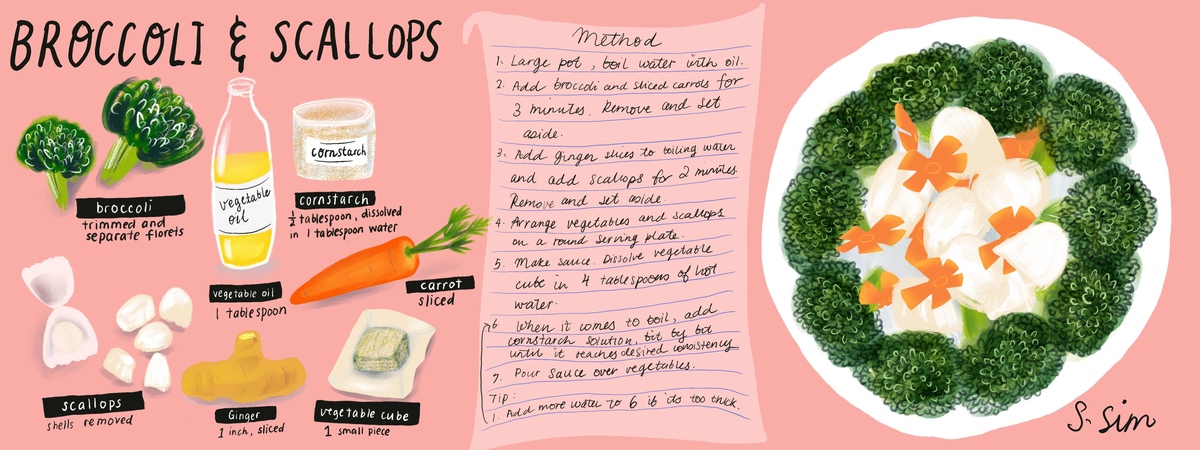 BROCCOLI & SCALLOPS
broccoli
trimmed and
separate florets
vegetable
oil
cornstarch
cornstarch
1/2 tablespoon, dissolved
in 1 tablespoon water
vegetable oil
1 tablespoon
carrot
sliced
scallops
shells removed
Ginger
1 inch, sliced
vegetable cube
1 small piece
Method
1. Large pot, boil water with oil.
2. Add broccoli and sliced carrots for
3 minutes. Remove and set
aside.
3. Add ginger slices to boiling water
and add scallops for 2 minutes.
Remove and set aside
4. Arrange vegetables and scallops
on a round serving plate.
5. Make sauce. Dissolve vegetable
cube in 4 tablespoons of hot
water.
6. When it comes to boil, add
cornstarch solution, bit by bit
until it reaches desired consistency
7. Pour sauce over vegetables.
Tip:
1. Add more water to 6 if its too thick.
S. Sim